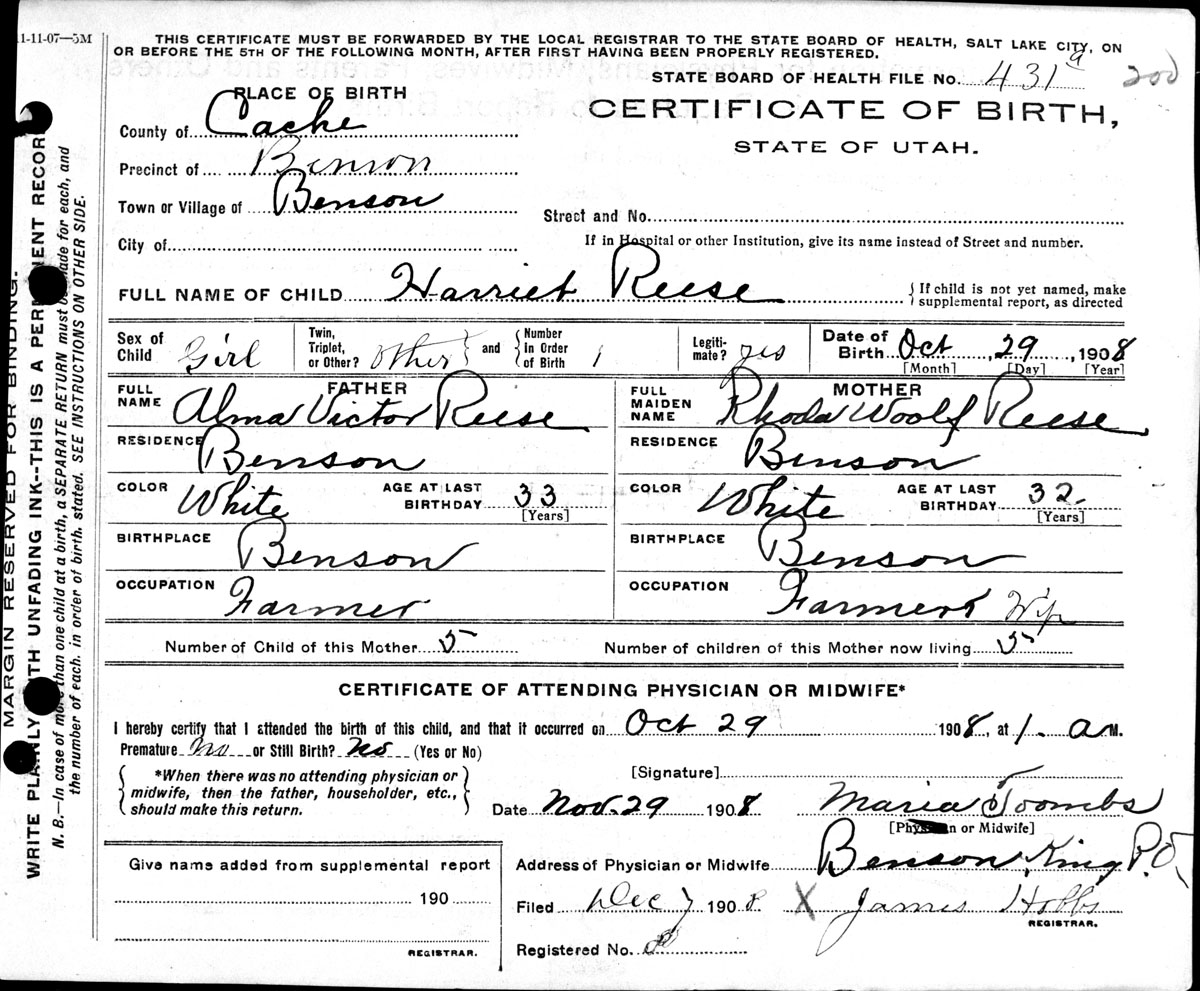 11-11-07—5M
THIS CERTIFICATE MUST BE FORWARDED BY THE LOCAL REGISTRAR TO THE STATE BOARD OF HEALTH, SALT LAKE CITY, ON
OR BEFORE THE 5TH OF THE FOLLOWING MONTH, AFTER FIRST HAVING BEEN PROPERLY REGISTERED.
STATE BOARD OF HEALTH FILE No. 431a 200
PLACE OF BIRTH
CERTIFICATE OF BIRTH,
STATE OF UTAH.
County of Cache
Precinct of Benson
Town or Village of Benson
Street and No.
City of
If in Hospital or other Institution, give its name instead of Street and number.
FULL NAME OF CHILD Harriet Reese { If child is not yet named, make
supplemental report, as directed
Sex of Child Girl Twin, Triplet, or Other? Other and Number in Order of Birth 1 Legiti-mate? yes Date of Birth Oct, 29, 1908
[Month] [Day] [Year]
FATHER MOTHER
FULL NAME Alma Victor Reese FULL MAIDEN NAME Rhoda Woolf Reese
RESIDENCE Benson RESIDENCE Benson
COLOR White AGE AT LAST BIRTHDAY 33 [Years] COLOR White AGE AT LAST BIRTHDAY 32 [Years]
BIRTHPLACE Benson BIRTHPLACE Benson
OCCUPATION Farmer OCCUPATION Farmers Wife
Number of Child of this Mother 5 Number of children of this Mother now living 5
CERTIFICATE OF ATTENDING PHYSICIAN OR MIDWIFE*
I hereby certify that I attended the birth of this child, and that it occurred on Oct 29 1908, at 1. a M.
Premature No or Still Birth? No (Yes or No)
*When there was no attending physician or
midwife, then the father, householder, etc.,
should make this return.
[Signature]
Date Nov. 29 1908 Maria Toombs
[Physician or Midwife]
Give name added from supplemental report
Address of Physician or Midwife Benson, King P.O.
190
Filed Dec 7 1908 X James Hobbs
REGISTRAR.
REGISTRAR.
Registered No.
MARGIN RESERVED FOR BINDING.
WRITE PLAINLY WITH UNFADING INK--THIS IS A PERMANENT RECORD
N. B.—In case of more than one child at a birth, a SEPARATE RETURN must be made for each, and
the number of each, in order of birth, stated. SEE INSTRUCTIONS ON OTHER SIDE.